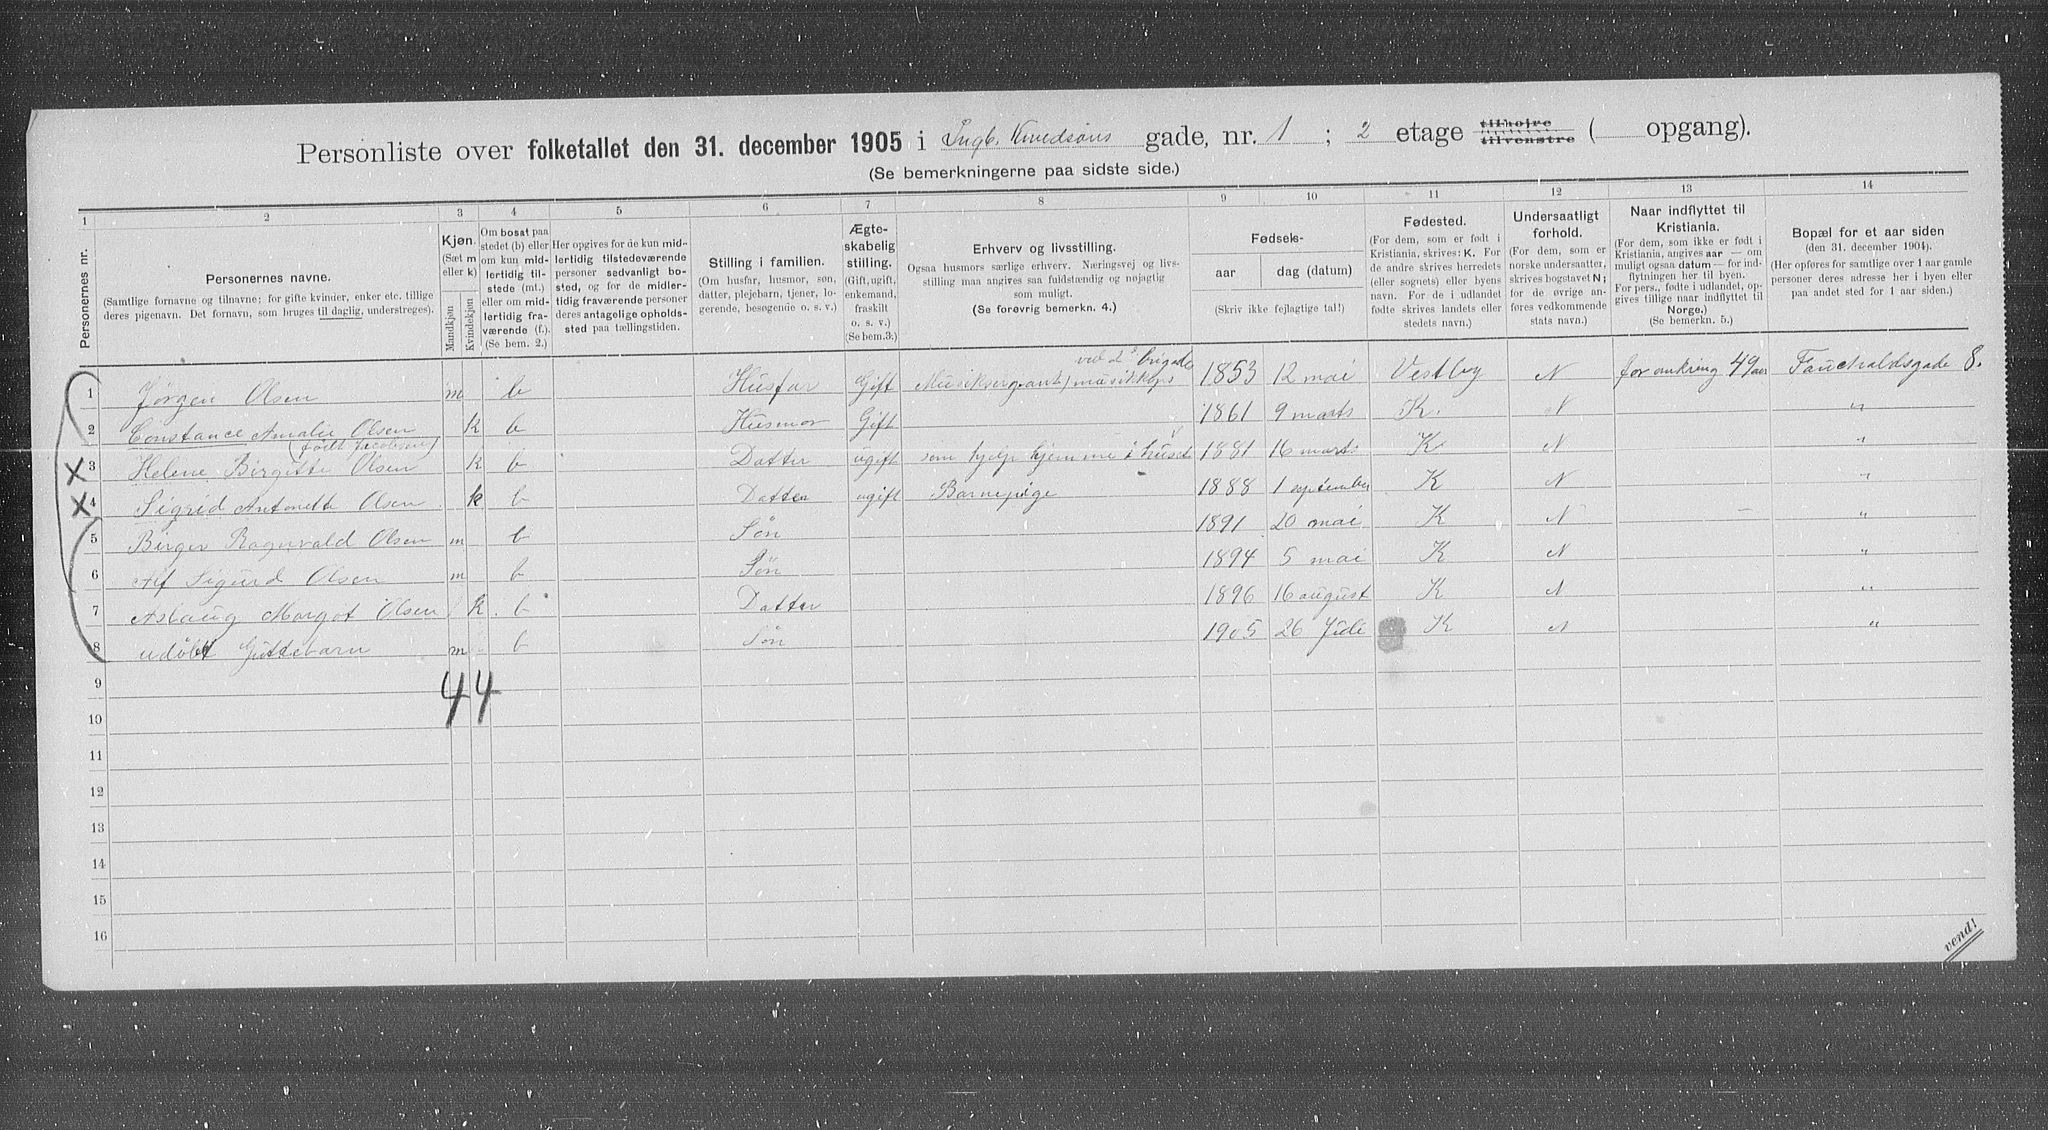 Personliste over folketallet den 31. december 1905 i Ingb. Knudsöns gade, nr. 1 ; 2 etage tilhøjre tilvenstre ( opgang).
(Se bemerkningerne paa sidste side.)
1 2 3 4 5 6 7 8 9 10 11 12 13 14
Personernes nr.
Personernes navne.
(Samtlige fornavne og tilnavne; for gifte kvinder, enker etc. tillige
deres pigenavn. Det fornavn, som bruges til daglig, understreges).
Kjøn.
(Sæt m
eller k)
Mandkjøn
Kvindekjøn
Om bosat paa
stedet (b) eller
om kun mid-
lertidig til-
stede (mt.)
eller om mid-
lertidig fra-
værende (f.).
(Se bem. 2.)
Her opgives for de kun mid-
lertidig tilstedeværende
personer sedvanlig bo-
sted, og for de midler-
tidig fraværende personer
deres antagelige opholds-
sted paa tællingstiden.
Stilling i familien.
(Om husfar, husmor, søn,
datter, plejebarn, tjener, lo-
gerende, besøgende o. s. v.)
Ægte-
skabelig
stilling.
(Gift, ugift,
enkemand,
fraskilt
o. s. v.)
(Se bem.3.)
Erhverv og livsstilling.
Ogsaa husmors særlige erhverv. Næringsvej og livs-
stilling maa angives saa fuldstændig og nøjagtig
som muligt.
(Se forøvrig bemerkn. 4.)
Fødsels-
aar dag (datum)
(Skriv ikke fejlagtige tal!)
Fødested.
(For dem, som er født i
Kristiania, skrives: K. For
de andre skrives herredets
(eller sognets) eller byens
navn. For de i udlandet
fødte skrives landets eller
stedets navn.)
Undersaatligt
forhold.
(For dem, som er
norske undersaatter,
skrives bogstavet N;
for de øvrige an-
føres vedkommende
stats navn.)
Naar indflyttet til
Kristiania.
(For dem, som ikke er født i
Kristiania, angives aar — om
muligt ogsaa datum — for ind-
flytningen her til byen.
For pers., fødte i udlandet, op-
gives tillige naar indflyttet til
Norge.)
(Se bemerkn. 5.)
Bopæl for et aar siden
(den 31. december 1904).
(Her opføres for samtlige over 1 aar gamle
personer deres adresse her i byen eller
paa andet sted for 1 aar siden.)
1 Jørgen Olsen m b Husfar Gift Musiksergeant ved 2 brigades musikkorps 1853 12 mai Vestby N for omkring 49 aar Fauchaldsgade 8.
2 Constance Amalie Olsen (født Jacobsen) k b Husmor Gift 1861 9 marts K. N "
3 Helene Birgitte Olsen k b Datter ugift som hjelp hjemme i huset 1881 16 marts K N "
4 Sigrid Antonette Olsen k b Datter ugift Barnepige 1888 1 september K N "
5 Birger Ragnvald Olsen m b Søn 1891 20 mai K N — "
6 Alf Sigurd Olsen m b Søn 1894 5 mai K N "
7 Aslaug Margot Olsen k b Datter 1896 16 august K N "
8 udøbt Guttebarn m b Søn 1905 26 Juli K N "
9 4 4
10
11
12
13
14
15
16
vend!